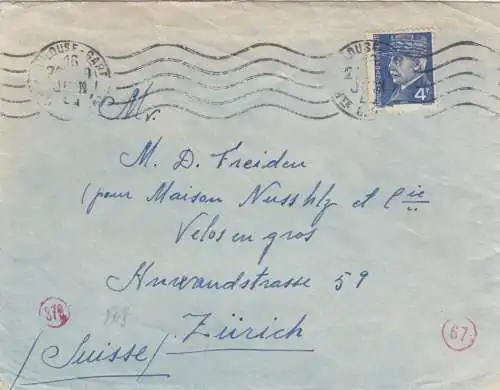 TOULOUSE-GARE
16
JUIN
4F
Mr
M. D. Freiden
(pour Maison Nussklz et Cie
Velos en gros
Anwandstrasse 59
Zürich
/Suisse/
67